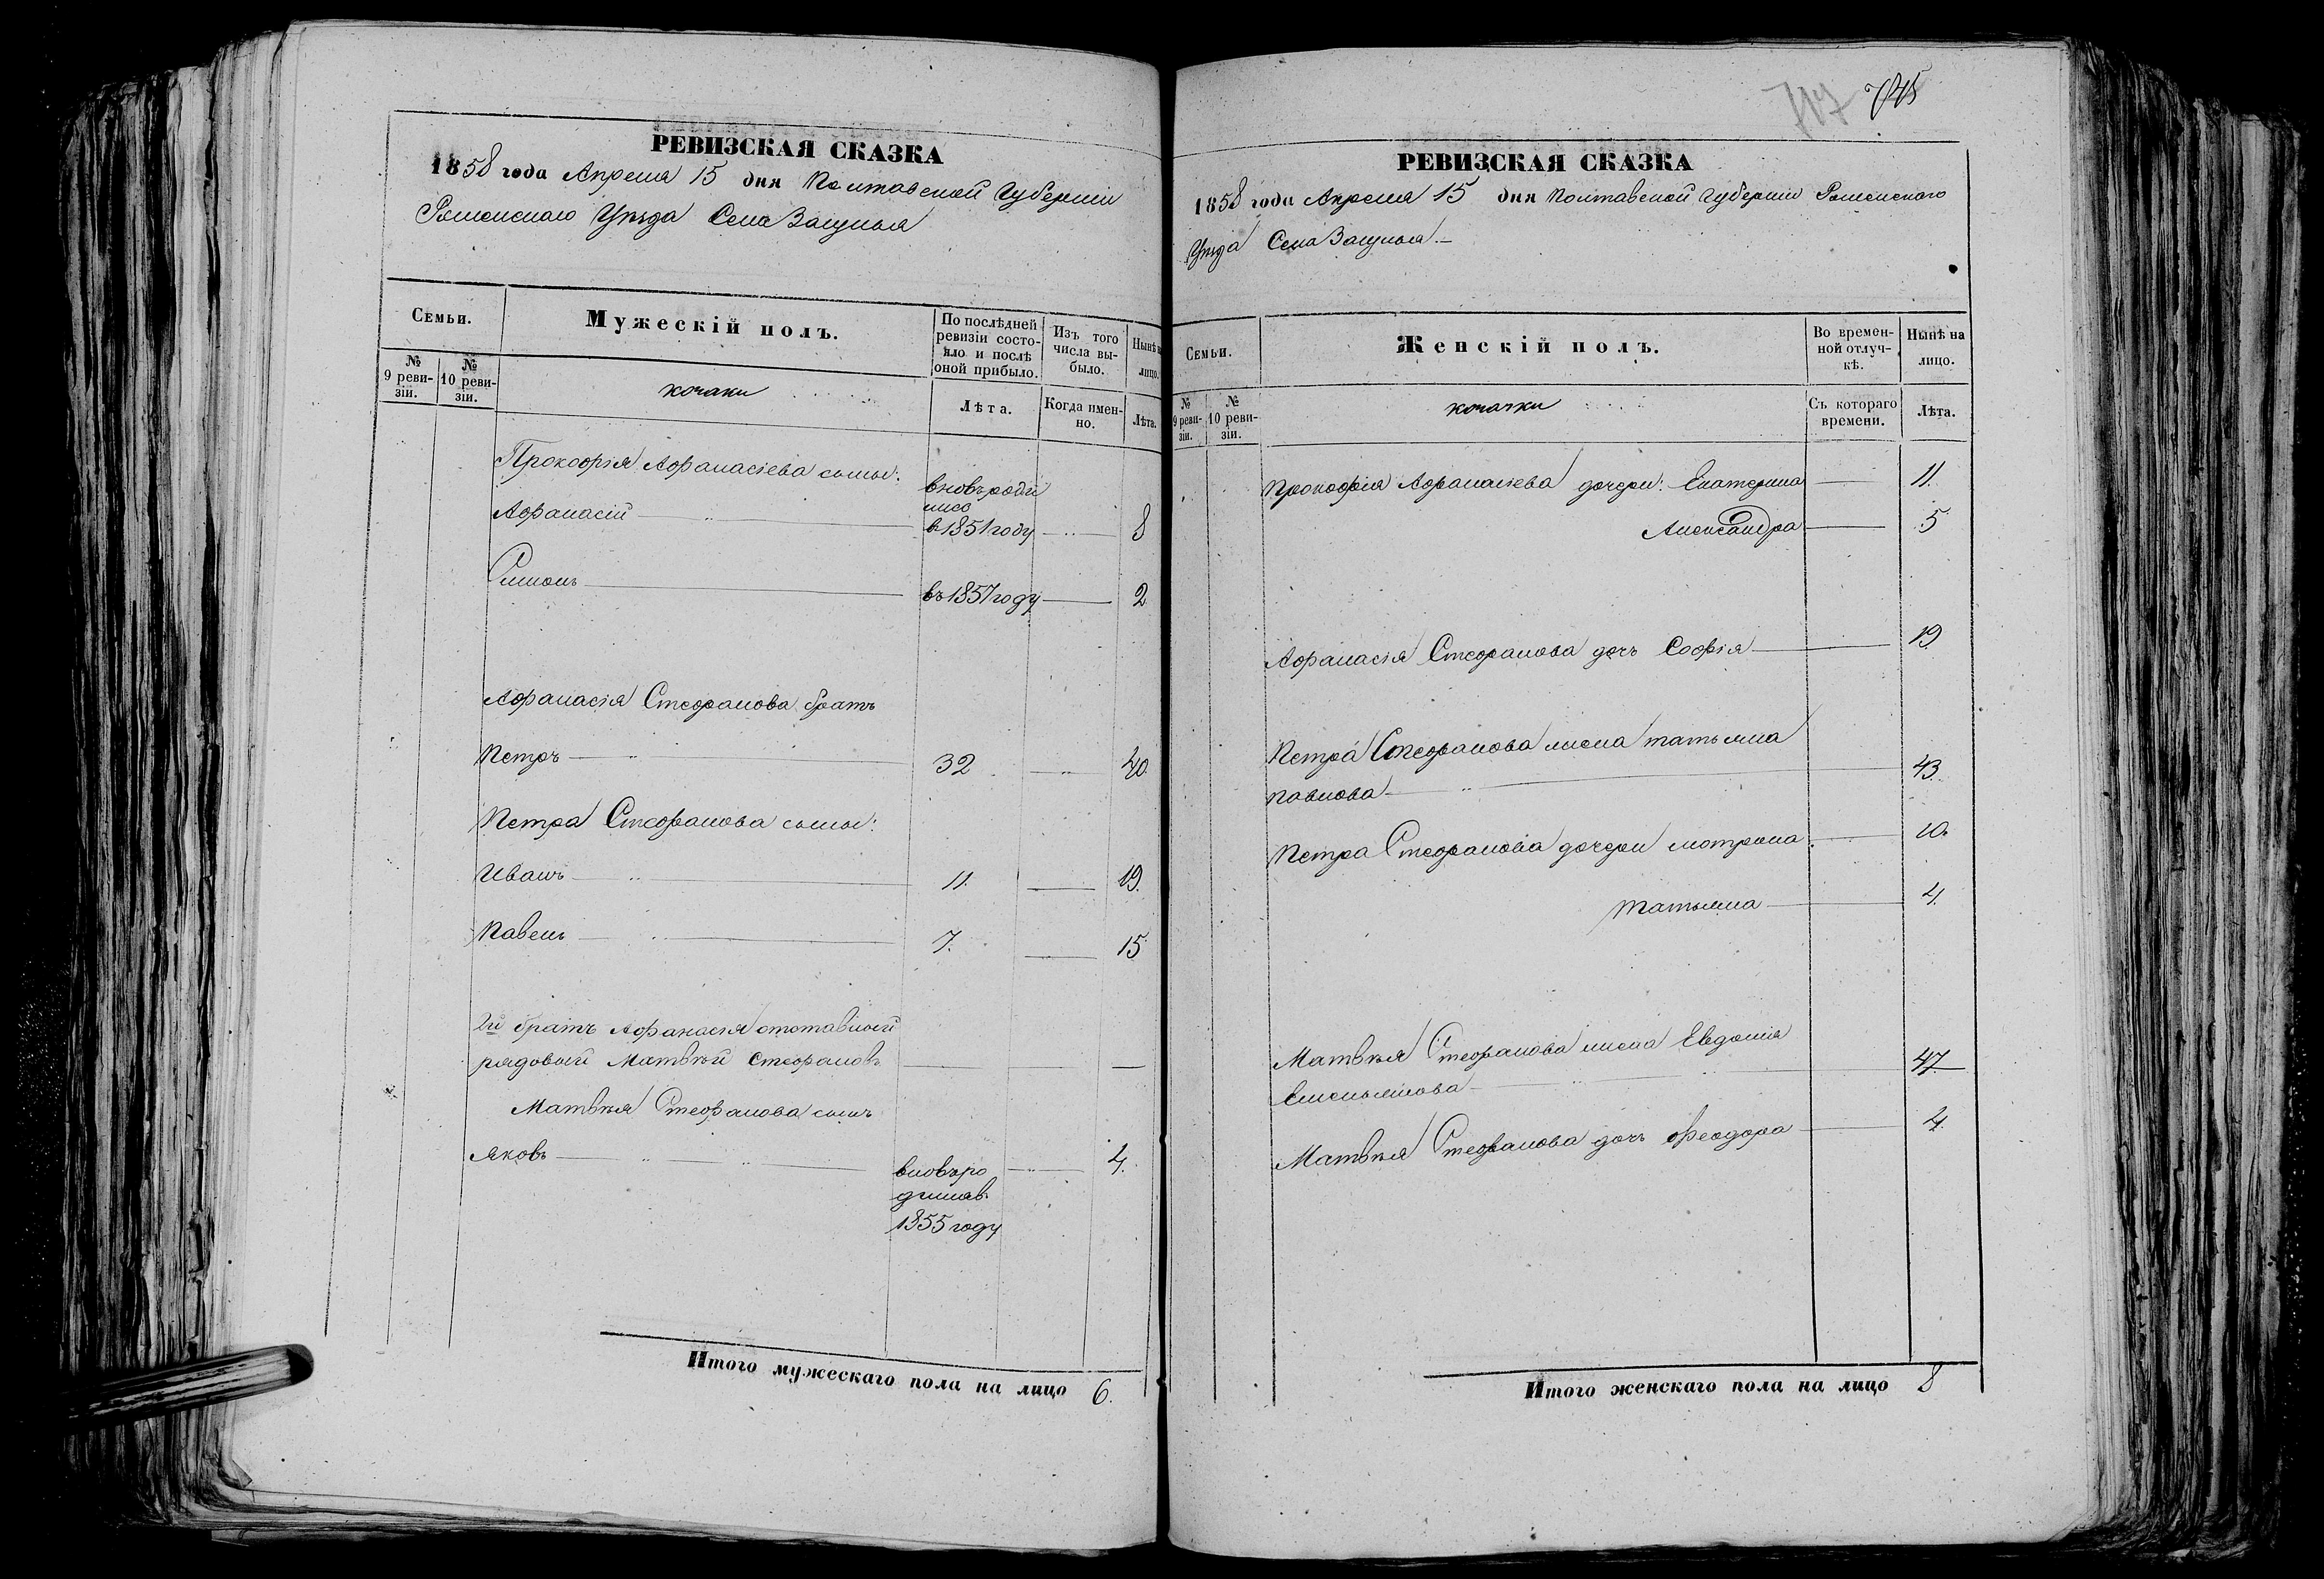 РЕВИЗСКАЯ СКАЗКА
1858 года Апреля 15 дня Полтавской Губерніи
Роменского Уѣзда Села Засулья
Семьи.
Мужескій полъ.
По послѣдней ревизіи состояло и послѣ оной прибыло.
Изъ того числа выбыло.
Нынѣ на лицо.
№ 9 ревизіи.
№ 10 ревизіи.
козаки
Лѣта.
Когда именно.
Лѣта.
Прокофія Афанасіева сыны:
вновь роди
лись
Афанасій в 1851 году 8
Симонъ въ 1857 году 2
Афанасія Стефанова братъ
Петръ 32 40
Петра Стефанова сыны:
Иванъ 11. 19.
Павелъ 7. 15
2й братъ Афанасія отставной
рядовый Матвѣй Стефановъ
Матвѣя Стефанова сынъ
Яковъ вновь ро 4.
дился в
1855 году
Итого мужескаго пола на лицо 6.
717 745
РЕВИЗСКАЯ СКАЗКА
1858 года Апреля 15 дня Полтавской Губерніи Роменского
Уѣзда Села Засулья.
Семьи.
Женскій полъ.
Во временной отлучкѣ.
Нынѣ на лицо.
№ 9 ревизіи.
№ 10 ревизіи.
козачки
Съ котораго времени.
Лѣта.
Прокофія Афанасіева дочери: Екатерина 11.
Александра 5
Афанасія Стефанова дочь Софія 19
Петра Стефанова жена Татьяна
Павлова 43.
Петра Стефанова дочери Мотрона 10.
Татьяна 4.
Матвѣя Стефанова жена Евдокія
Емельянова 47
Матвѣя Стефанова дочь Феодора 4.
Итого женскаго пола на лицо 8